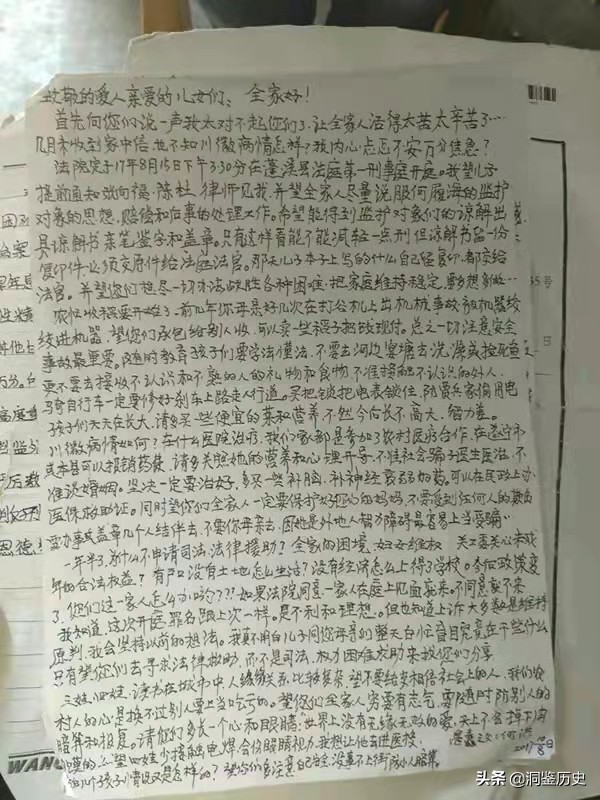 致敬的爱人亲爱的儿女们、全家好！
首先向你们说一声我太对不起你们了，让全家人活得太苦太辛苦了…
几月未收到家中信也不知川微病情怎样？我内心忐忑不安万分焦急？
法院定于17年8月15日下午3:30分在蓬溪县法庭第一刑事庭开庭。我望儿子
提前通知姚向福、陈杜律师见我，并望全家人尽量说服何履海的监护
对象的思想，赔偿和后事的处理工作。希望能得到监护对象们的谅解出
具谅解书亲笔签字和盖章。只有这样看能不能减轻一点刑但谅解书留一份
复印件必须交原件给法庭法官。那天儿子本子上写的什么自己经复印都给
法官。并望你们想尽一切办法战胜各种困难，把家庭维持稳定，
农忙收稻要开始了，前几年你母亲好几次在打谷机上出机械事故被机器绞
绞进机器，望你们承包给别人收，可以卖一些稻子把钱现付。总之一切注意安全
事故最重要。随时教育孩子们要学法懂法，不要去河边堰塘去洗澡或捡死鱼
更不要去接收不认识和不熟的人的礼物和食物不准接触不认识的外人、
骑自行车一定要修好刹车上路走人行道。买把锁把电表锁住，防贾兵家偷用电
孩子们天天在长大，请多买一些便宜的菜和营养不然今后长不高大，智力差。
川微病情如何？在什么医院治疗，我们家都是参加了农村医疗合作，在遂宁市
或本县可以报销药费，请多关照她的营养和心理开导，不准社会骗子医生医治，不
准说婚姻。坚决一定要治好，多买一些补脑、补神经衰弱的药，可以在民政上办
医保救助证。同时望你们全家人一定要保护好你们的妈妈，不要受到任何人的欺负
要办事或盖章几个人结伴去，不要你母亲去，因她是外地人智力障碍最容易上当受骗
一年半了，为什么不申请司法、法律援助？全家的困境、妇女维权 关工委关心未成
年的合法权益？有户口没有土地怎么生活？没有经济怎么上得了学校。
了，你们这一家人怎么办哟？？？如果法院同意一家人在庭上见面就来，不同意就不来
我知道，这次开庭罪名跟上次一样。是不利和理想。但也知道上诉大多数是维持
原判，我会坚持以前的想法。我真不明白儿子同你母亲们整天白忙盲目究竟在干些什么
只有望你们去寻求法律救助，而不是司法、权力困难
三娃、四娃，读书在城市中人缘关系比较复杂，望不要结交相信社会上的人，我们农
村人的心是换不过别人要上当吃亏的。望你们全家人穷要有志气，要随时防别人的
暗算和报复。请你们多长一个心和眼睛，世界上没有无缘无故的爱，天上不会掉下
望四娃少接触电焊会伤眼睛视力，我想让他去进医校，
几个孩子们情况又是怎样的？望你们多注意自己安全，没事不上街防小人暗算。
2017 8
WANG
头条 @洞鉴历史